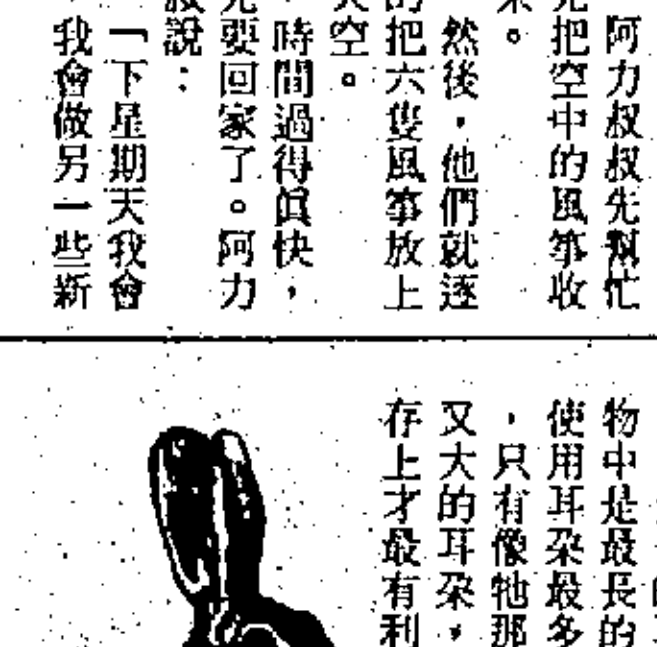 阿力叔叔先幫忙
把空中的風箏收
。
然後，他們就逐
的把六隻風箏放上
空。
時間過得眞快，
要回家了。阿力
說：
「下星期天我會
，我會做另一些新
物中是最長的
使用耳朶最多
，只有像牠那
又大的耳朶，
存上才最有利